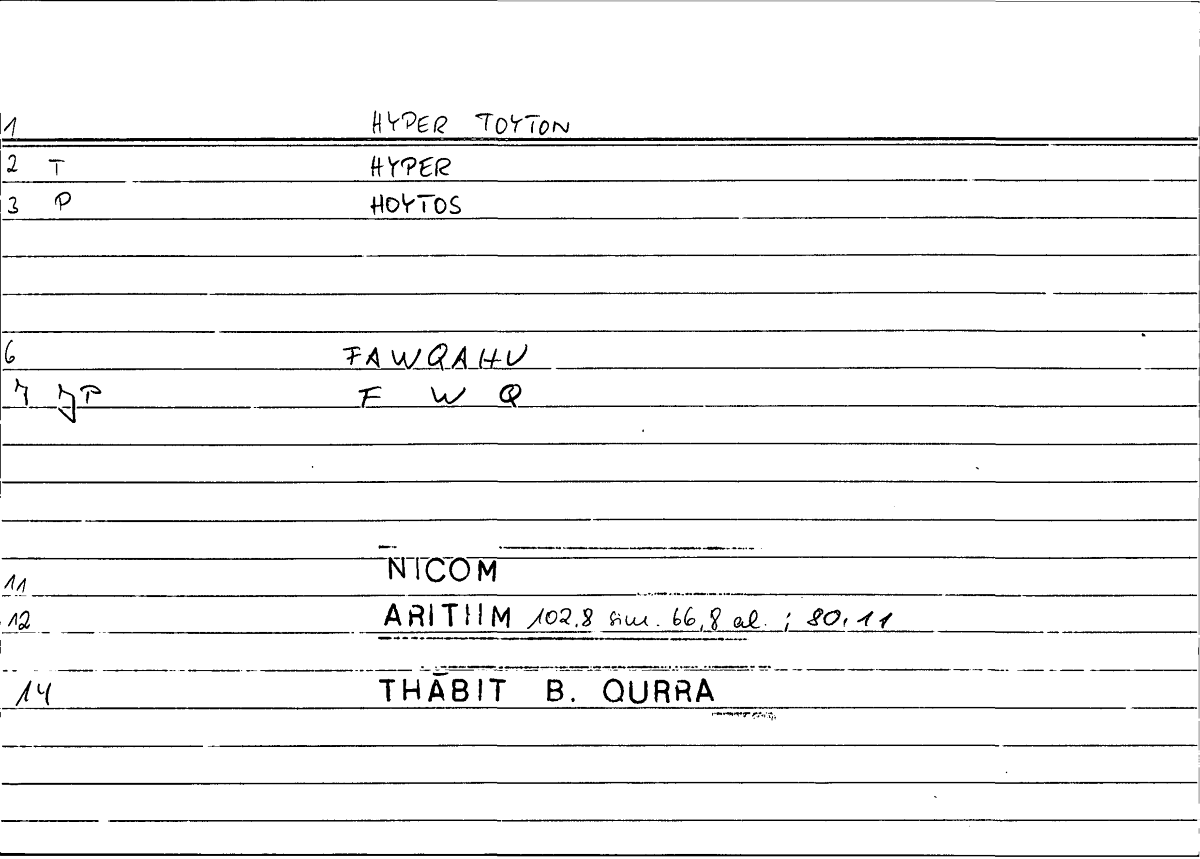 1 HYPER TOYTON
2 T HYPER
3 P HOYTOS
6 FAWQAHU
7 JP F W Q
11 NICOM
12 ARITHM 102,8 sim. 66,8 al. ; 80,11
14 THĀBIT B. QURRA